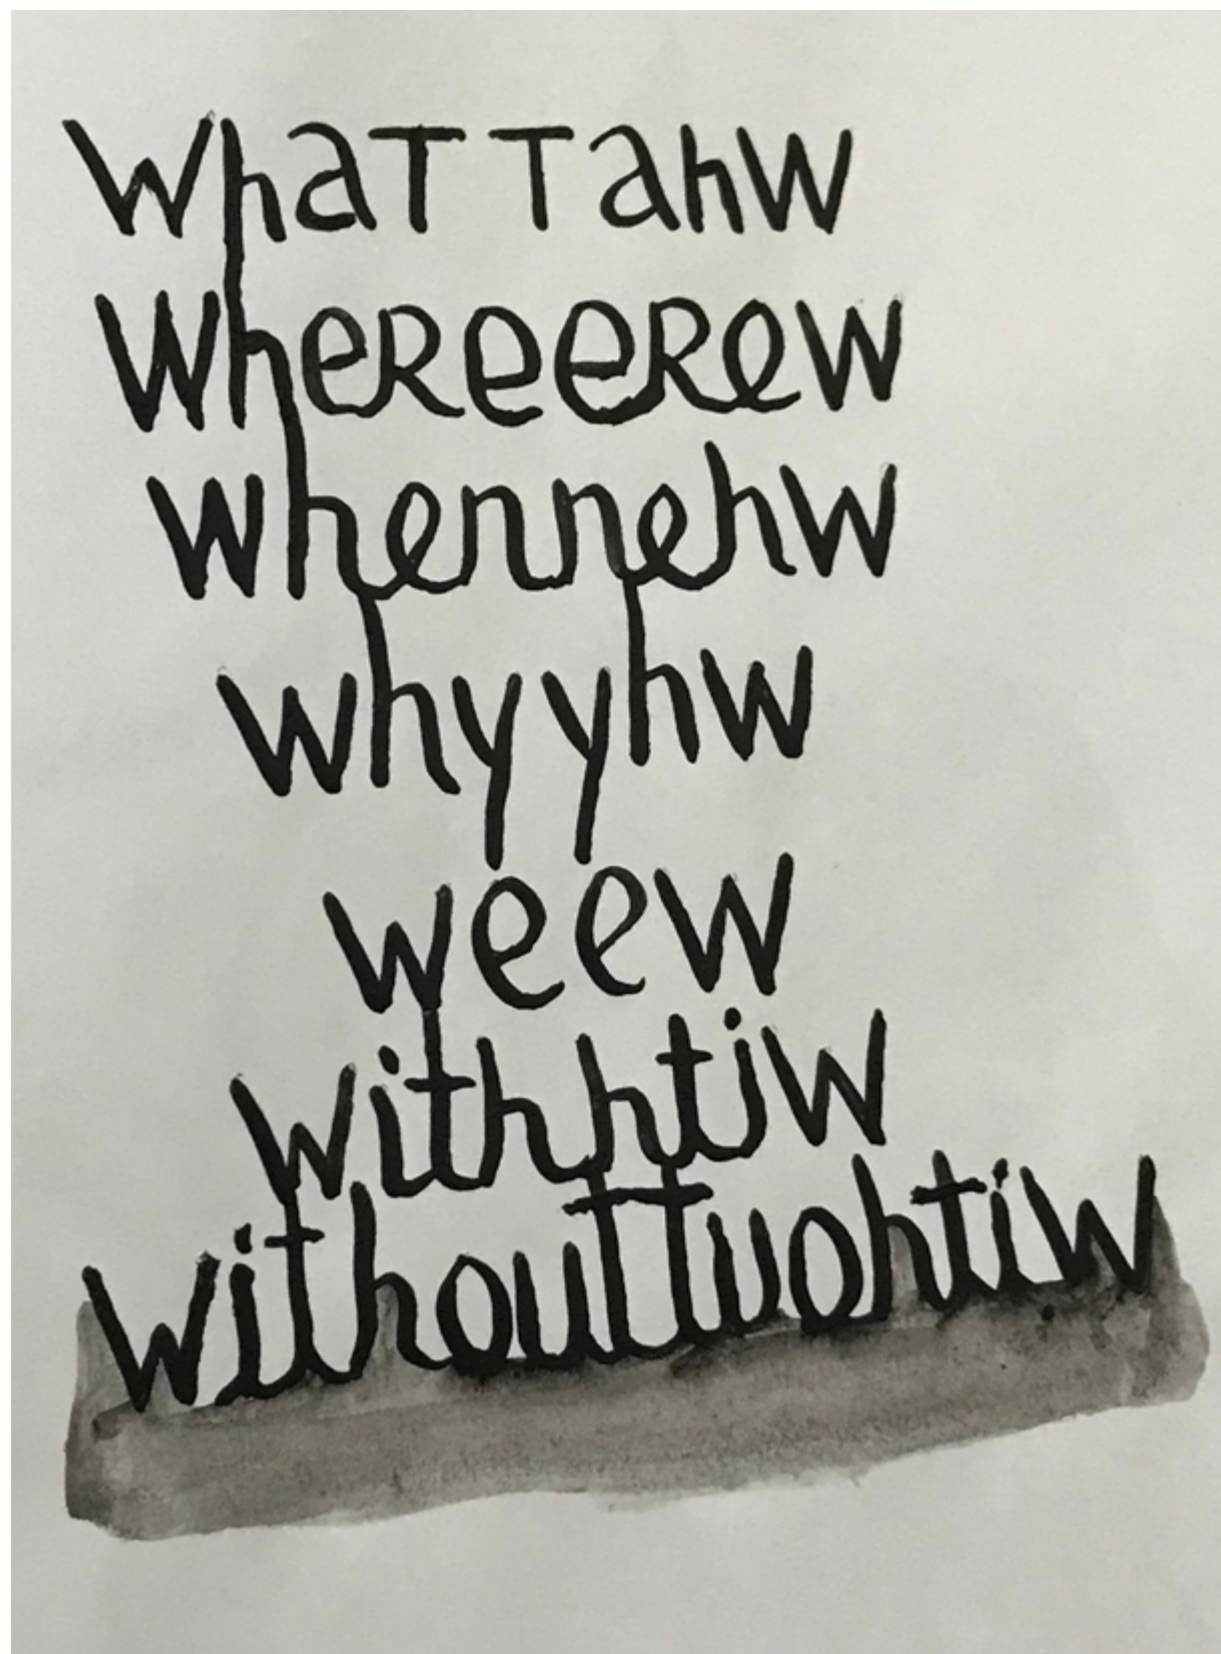 WhaT TahW
WheReeRew
whennehw
whyyhw
weew
withhtiw
withouTTuohtiw